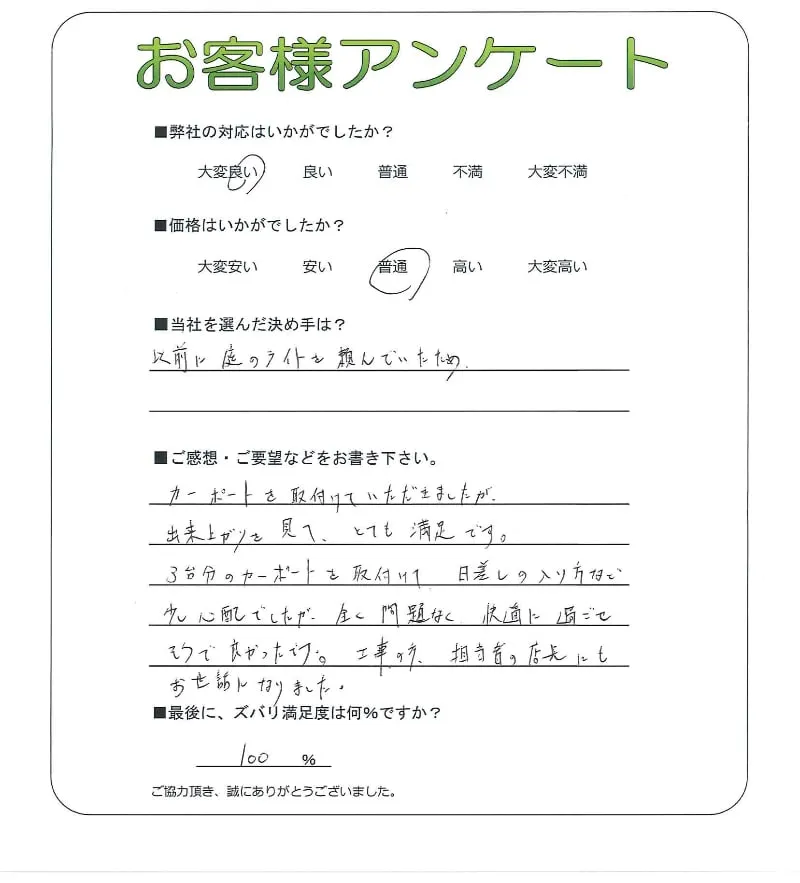 お客様アンケート
■弊社の対応はいかがでしたか？
大変良い 良い 普通 不満 大変不満
■価格はいかがでしたか？
大変安い 安い 普通 高い 大変高い
■当社を選んだ決め手は？
以前に庭のライトを頼んでいたため
■ご感想・ご要望などをお書き下さい。
カーポートを取付けていただきましたが、
出来上がりを見て、とても満足です。
3台分のカーポートを取付けて 日差しの入り方など
少し心配でしたが、全く問題なく 快適に過ごせ
そうで良かったです。工事の方、担当者の店長にも
お世話になりました。
■最後に、ズバリ満足度は何％ですか？
100 ％
ご協力頂き、誠にありがとうございました。